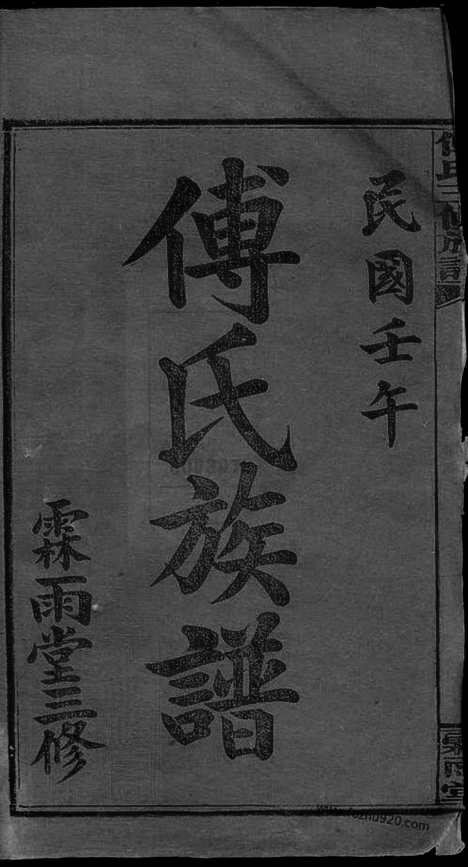 民國壬午
傅氏族譜
霖雨堂三修
傅氏三修族譜
霖雨堂